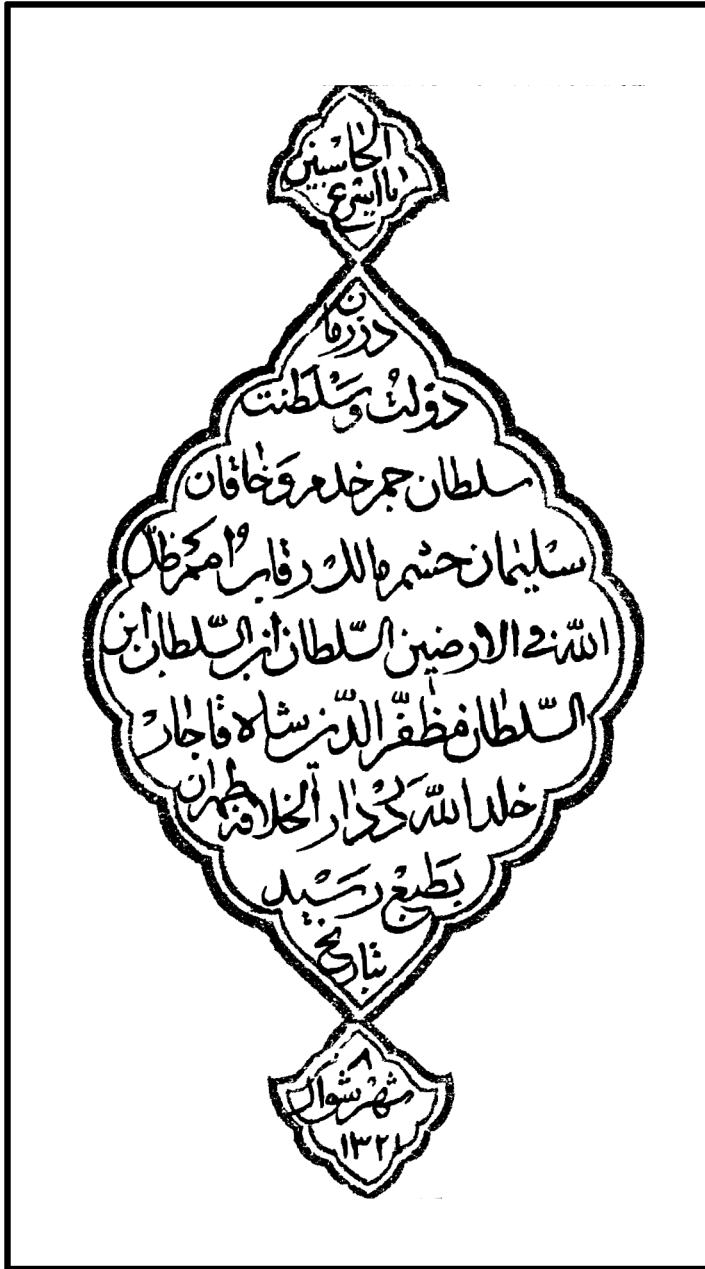 الحاسبین
یا اسرع
در زمان
دولت و سلطنت
سلطان جم خدم و خاقان
سلیمان حشم مالک رقاب امم ظل
الله فی الارضین السلطان ابن السلطان ابن
السلطان مظفّر الدّین شاه قاجار
خلد الله در دار الخلافه طهران
بطبع رسید
بتاریخ
۸
شهر شوال
۱۳۲۱